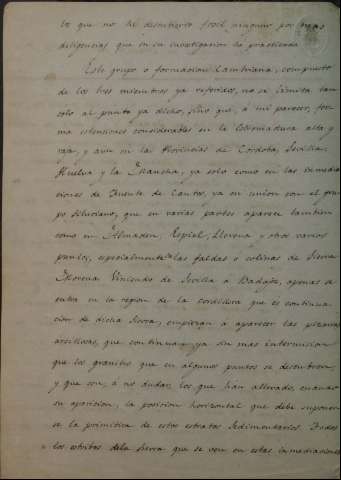 lo que no he descubierto fosil ninguno por mas
diligencias que en su investigacion he practicado
Este grupo ó formacion Cambriana, compuesto
de los tres miembros ya referidos, no se limita tan
solo al punto ya dicho, sino que, á mi parecer, for
ma estensiones considerables en la Estremadura alta y
baja, y aun en las Provincias de Cordoba, Sevilla,
Huelva y la Mancha, ya solo como en las inmedia
ciones de Fuente de Cantos, ya en union con el gru
po Siluriano, que en varias partes aparece tambien
como en Almaden, Espiel, Llerena y otros varios
puntos, especialmente las faldas ó colinas de Sierra
Morena. Viniendo de Sevilla á Badajoz, apenas se
entra en la region de la cordillera que es continua
cion de dicha Sierra, empiezan á aparecer las pizarras
arcillosas, que continuan ya sin mas intermision
que los granitos que en algunos puntos se descubren,
y que son, á no dudar, los que han alterado, cuando
su aparicion, la posicion horizontal que debe suponer
se la primitiva de estos estratos sedimentarios. Todos
los estribos de la Sierra que se ven en estas inmediaciones